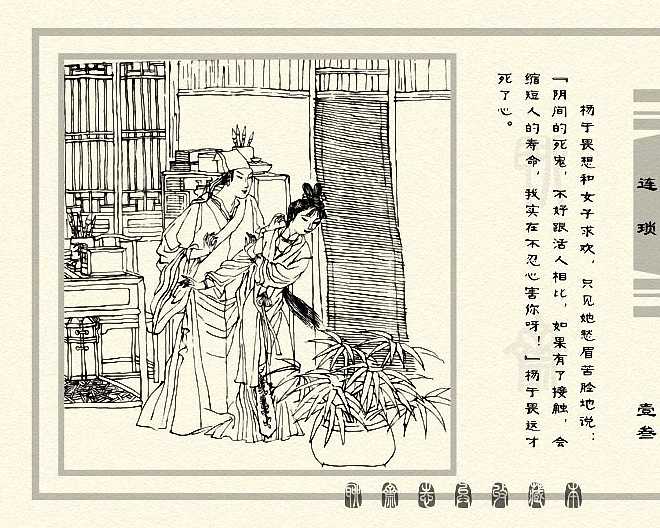 杨于畏想和女子求欢，只见她愁眉苦脸地说：
「阴间的死鬼，不好跟活人相比，如果有了接触，会
缩短人的寿命，我实在不忍心害你呀！」杨于畏这才
死了心。
连琐
壹叁
聊斋志异收藏本